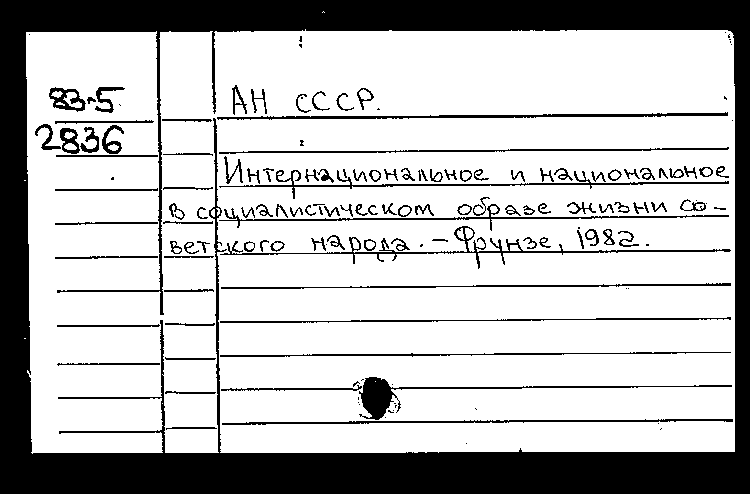 83-5
2836
АН СССР.
Интернациональное и национальное
в социалистическом образе жизни со-
ветского народа. - Фрунзе, 1982.